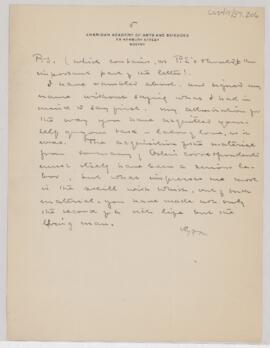 CUS417/57.206
5
AMERICAN ACADEMY OF ARTS AND SCIENCES
28 NEWBURY STREET
BOSTON
P.S. (which contains, as P.S.'s should, the
important part of the letter!.
I have rambled about and signed my
name without saying what I had in
mind to say first. My admiration for
the way you have acquitted your-
self of your task – labor of love, as it
was. The acquisition of the material
from so many of Osler's correspondents
must itself have been a serious la-
bor, but what impresses me most
is the skill with which, out of such
material, you have made not only
the record of a rich life but the
living man.